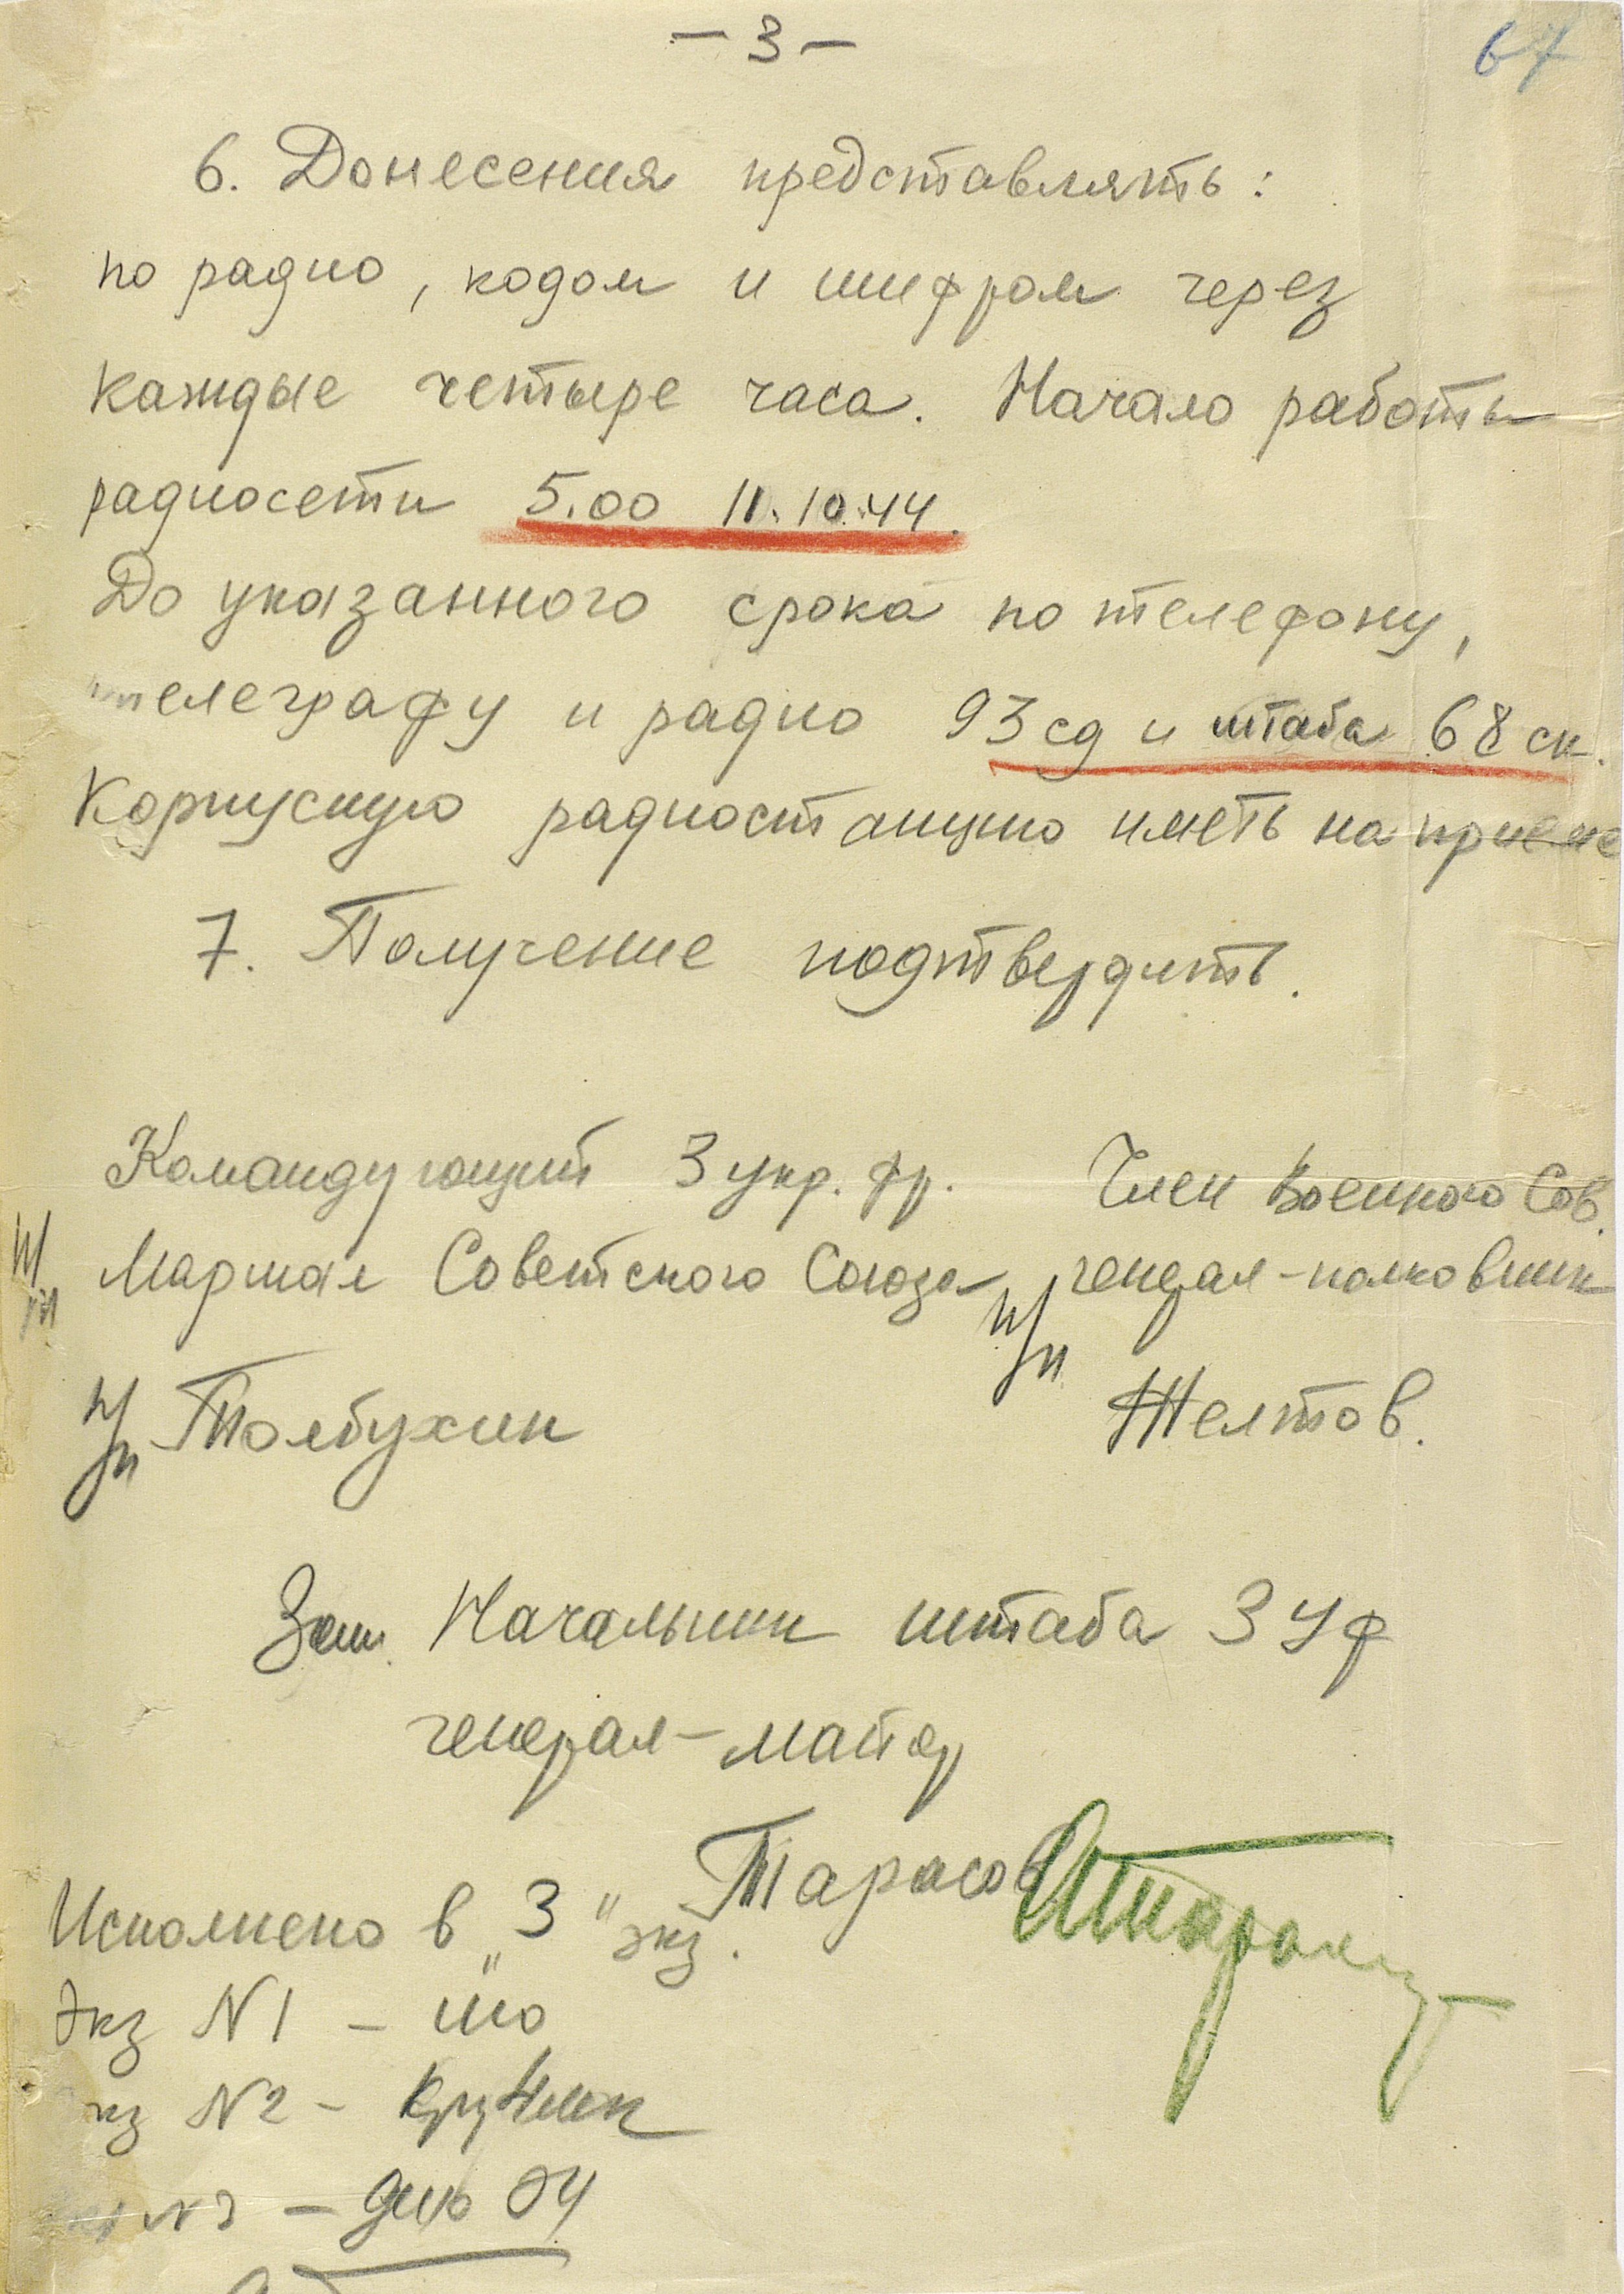 — 3 —
67
6. Донесения представлять:
по радио, кодом и шифром через
каждые четыре часа. Начало работы
радиосети 5.00 11.10.44.
До указанного срока по телефону,
телеграфу и радио 93 сд и штаба 68 ск.
Корпусную радиостанцию иметь на приеме
7. Получение подтвердить.
Командующий 3 укр. фр.
Член Военного Сов.
Маршал Советского Союза
генерал-полковник
п/п Толбухин
п/п Желтов.
Зам. Начальник штаба 3 Уф
генерал-майор
Тарасов
Исполнено в „3" экз.
Экз N1 – 
кз N2 – 
N3 – дело ОУ